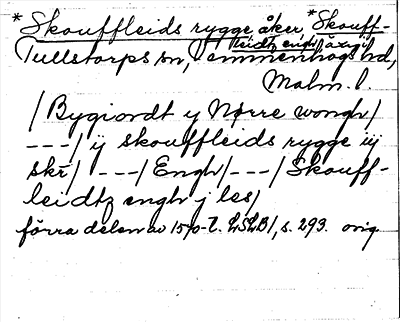 *Skouffleids rygge åker, *Skouff-
leidtz engh, äng i
Tullstorps sn, Vemmenhögs hd,
Malm. l.
/Bygiordt y Nørre wongh/
---/ ÿ skouffleids rygge iij
skr̄/ ---/Engh/---/Skouff-
leidtz engh j les/
förra delen av 1570-t. LSLB1, s. 293. orig